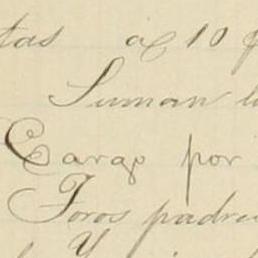 tas a 10 p
Suman l
Cargo por
Toros padre